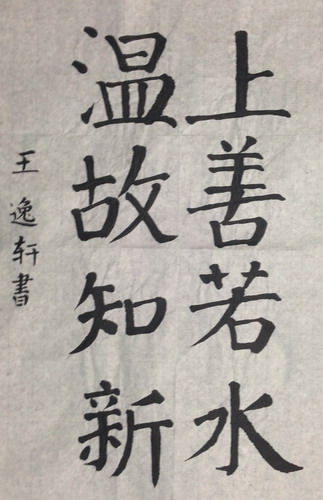 上善若水
温故知新
王逸轩書